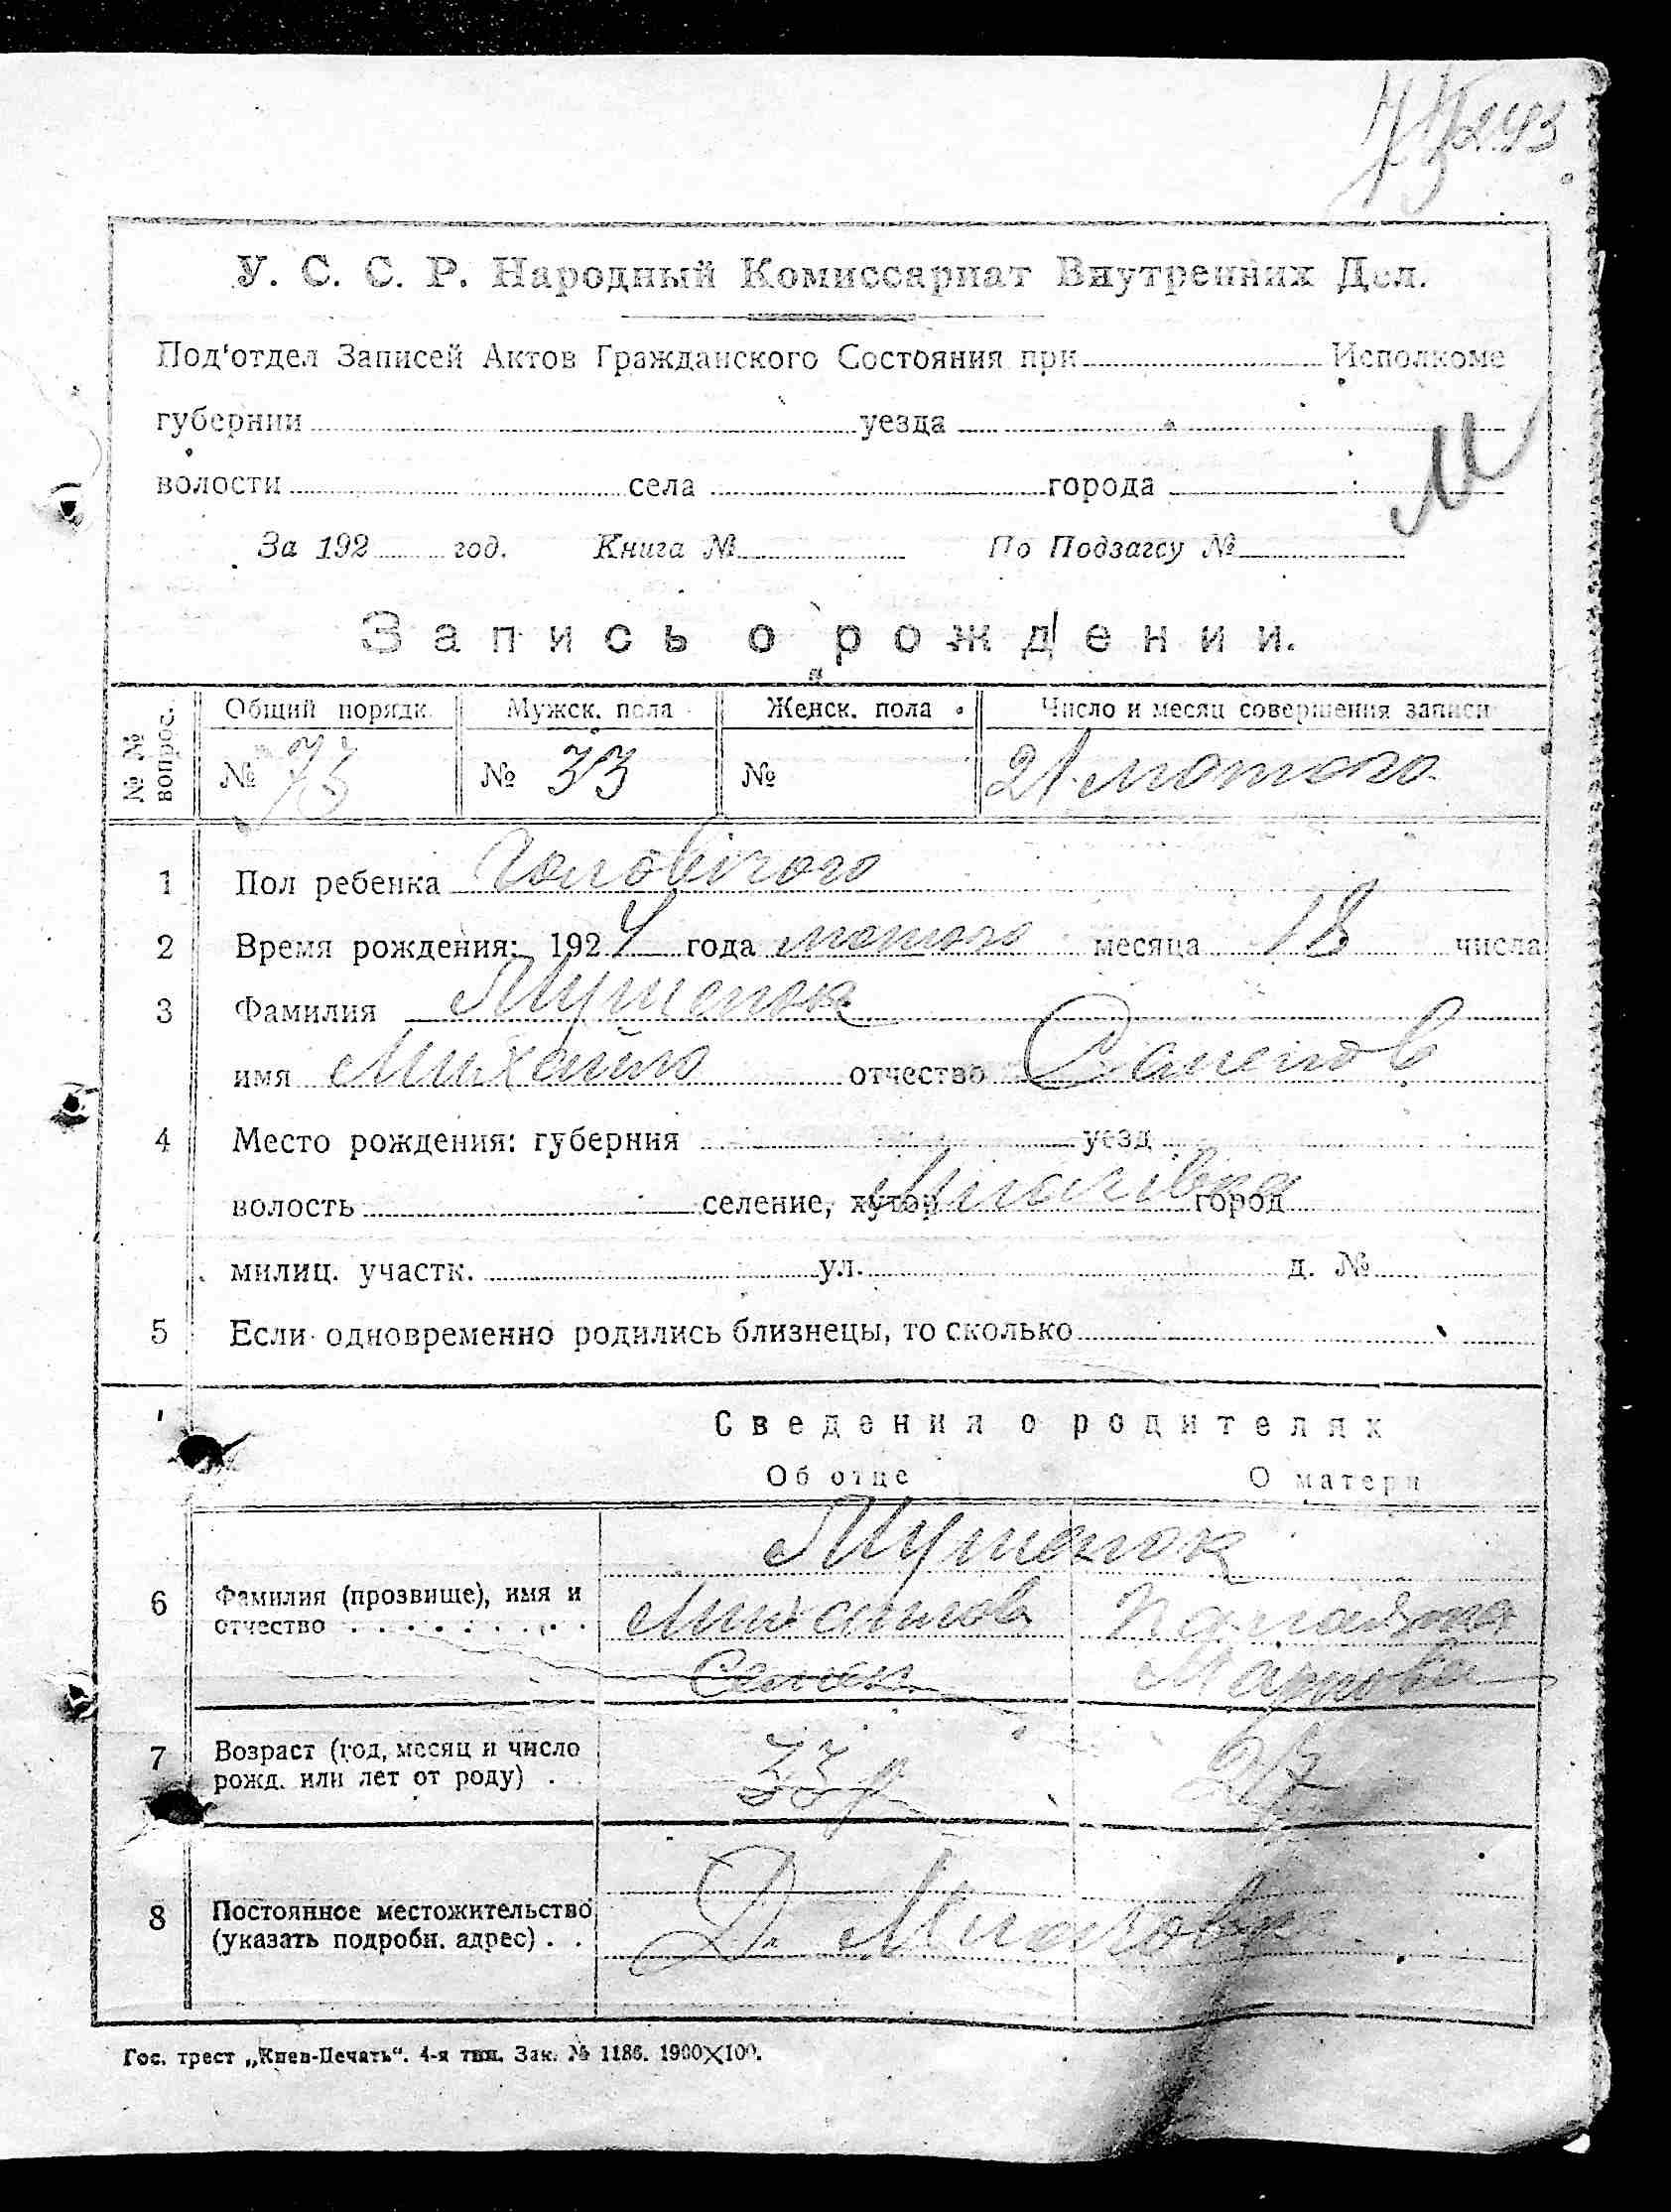 243
У. С. С. Р. Народный Комиссариат Внутренних Дел.
Под'отдел Записей Актов Гражданского Состояния при Исполкоме
губернии уезда
волости села города
М
За 192 год. Книга № По Подзагсу №
Запись о рождении.
№ № вопрос. Общий порядк. Мужск. пола Женск. пола Число и месяц совершения записи
№ 73 № 33 № 21 лютого
1 Пол ребенка Чоловічого
2 Время рождения: 1924 года лютого месяца 18 числа
3 Фамилия
имя Михайло отчество Семенов
4 Место рождения: губерния уезд
волость селение, хутор город
милиц. участк. ул. д. №
5 Если одновременно родились близнецы, то сколько
Сведения о родителях
Об отце О матери
6 Фамилия (прозвище), имя и
отчество
Михайлов
Семен
7 Возраст (год, месяц и число
рожд. или лет от роду) 33 р 27
8 Постоянное местожительство
(указать подробн. адрес)
Гос. трест „Киев-Печать“. 4-я тип. Зак. № 1186. 1900×100.